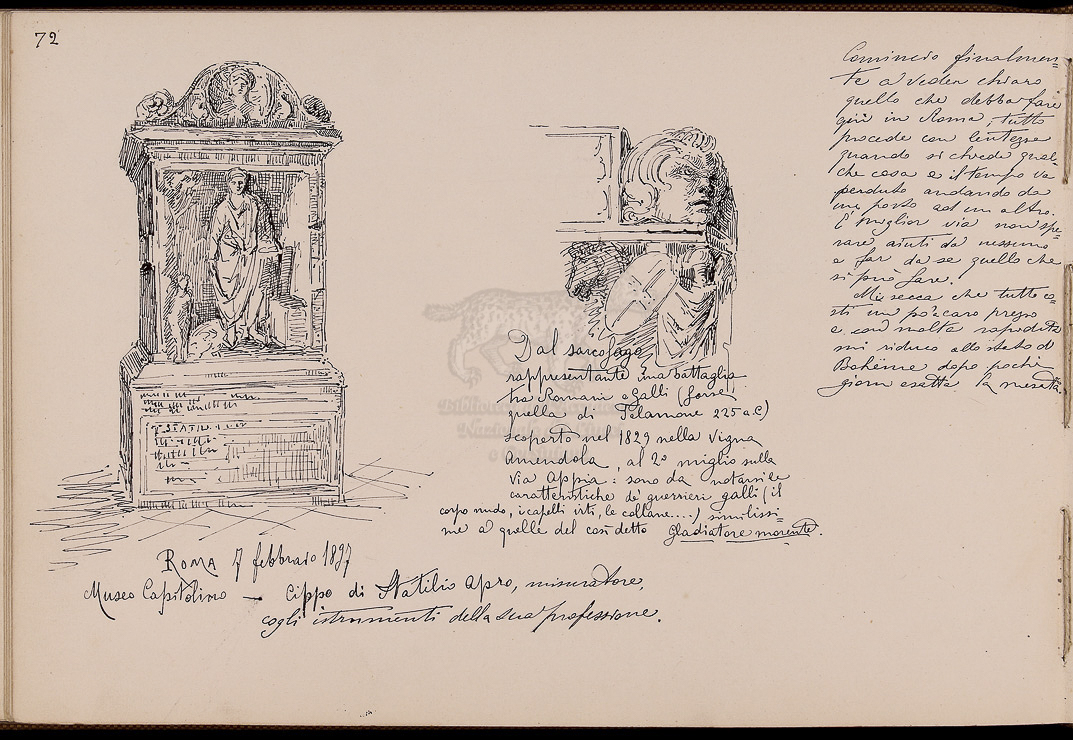 72
Comincio finalmen=
te a veder chiaro
quello che debba fare
qui in Roma, tutto
procede con lentezza
quando si chiede qual=
che cosa e il tempo va
perduto andando da
una posto ad un altro.
È miglior via non spe=
rare aiuti da nessuno
e far da se quello che
si può fare.
Mi secca che tutto co=
sti un po' caro prezzo
e con molta rapidità
mi riduco allo stato di
Bohême dopo pochi
giorni esatta la mesata.
Dal sarcofago,
rappresentante una battaglia
tra Romani e Galli (forse
quella di Telamone 225 a.C)
scoperto nel 1829 nella Vigna
Amendola, al 2º miglio sulla
Via Appia: sono da notarsi le
caratteristiche de' guerrieri galli (il
corpo nudo, i capelli irti, le collane....) similissi=
me a quelle del così detto Gladiatore morente.
T STATILIO
ROMA 7 febbraio 1897
Museo Capitolino — Cippo di Statilio Apro, misuratore,
cogli istrumenti della sua professione.
Biblioteca
Nazionale